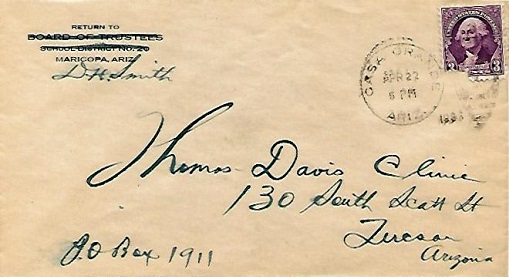 RETURN TO
BOARD OF TRUSTEES
SCHOOL DISTRICT NO. 20
MARICOPA, ARIZ.
D.H. Smith
CASA GRANDE
APR 22
6 PM
ARIZ.
3 3
Thomas Davis Clinic
130 South Scott St
Tucson
Arizona
P.O Box 1911